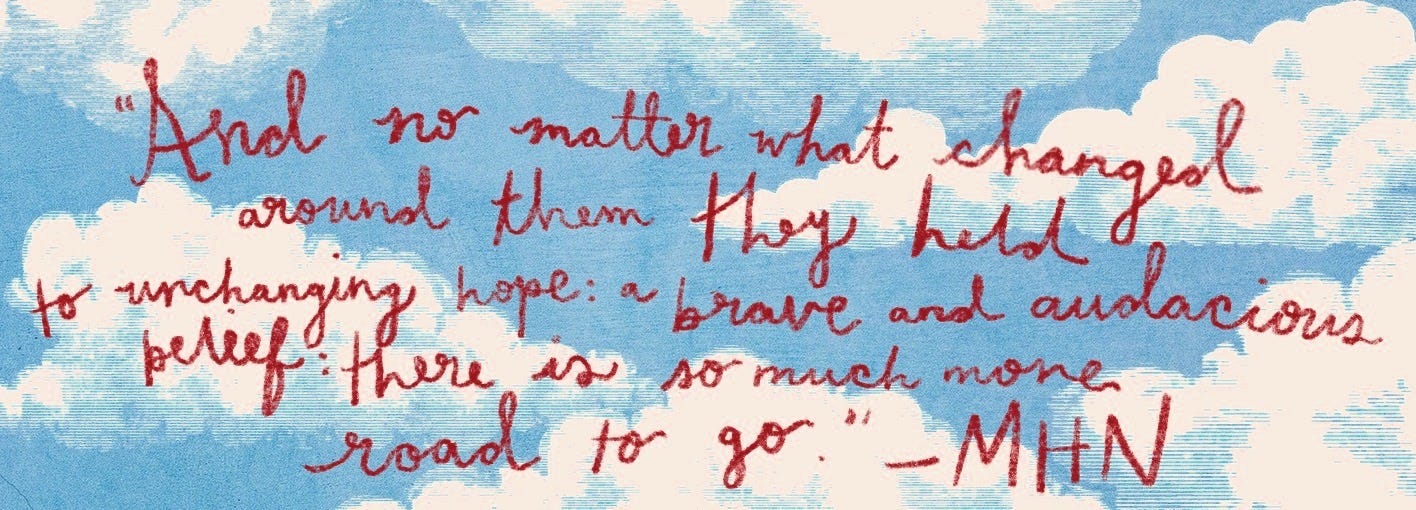 "And no matter what changed
around them they held
to unchanging hope: a brave and audacious
belief: there is so much more
road to go." -MHN